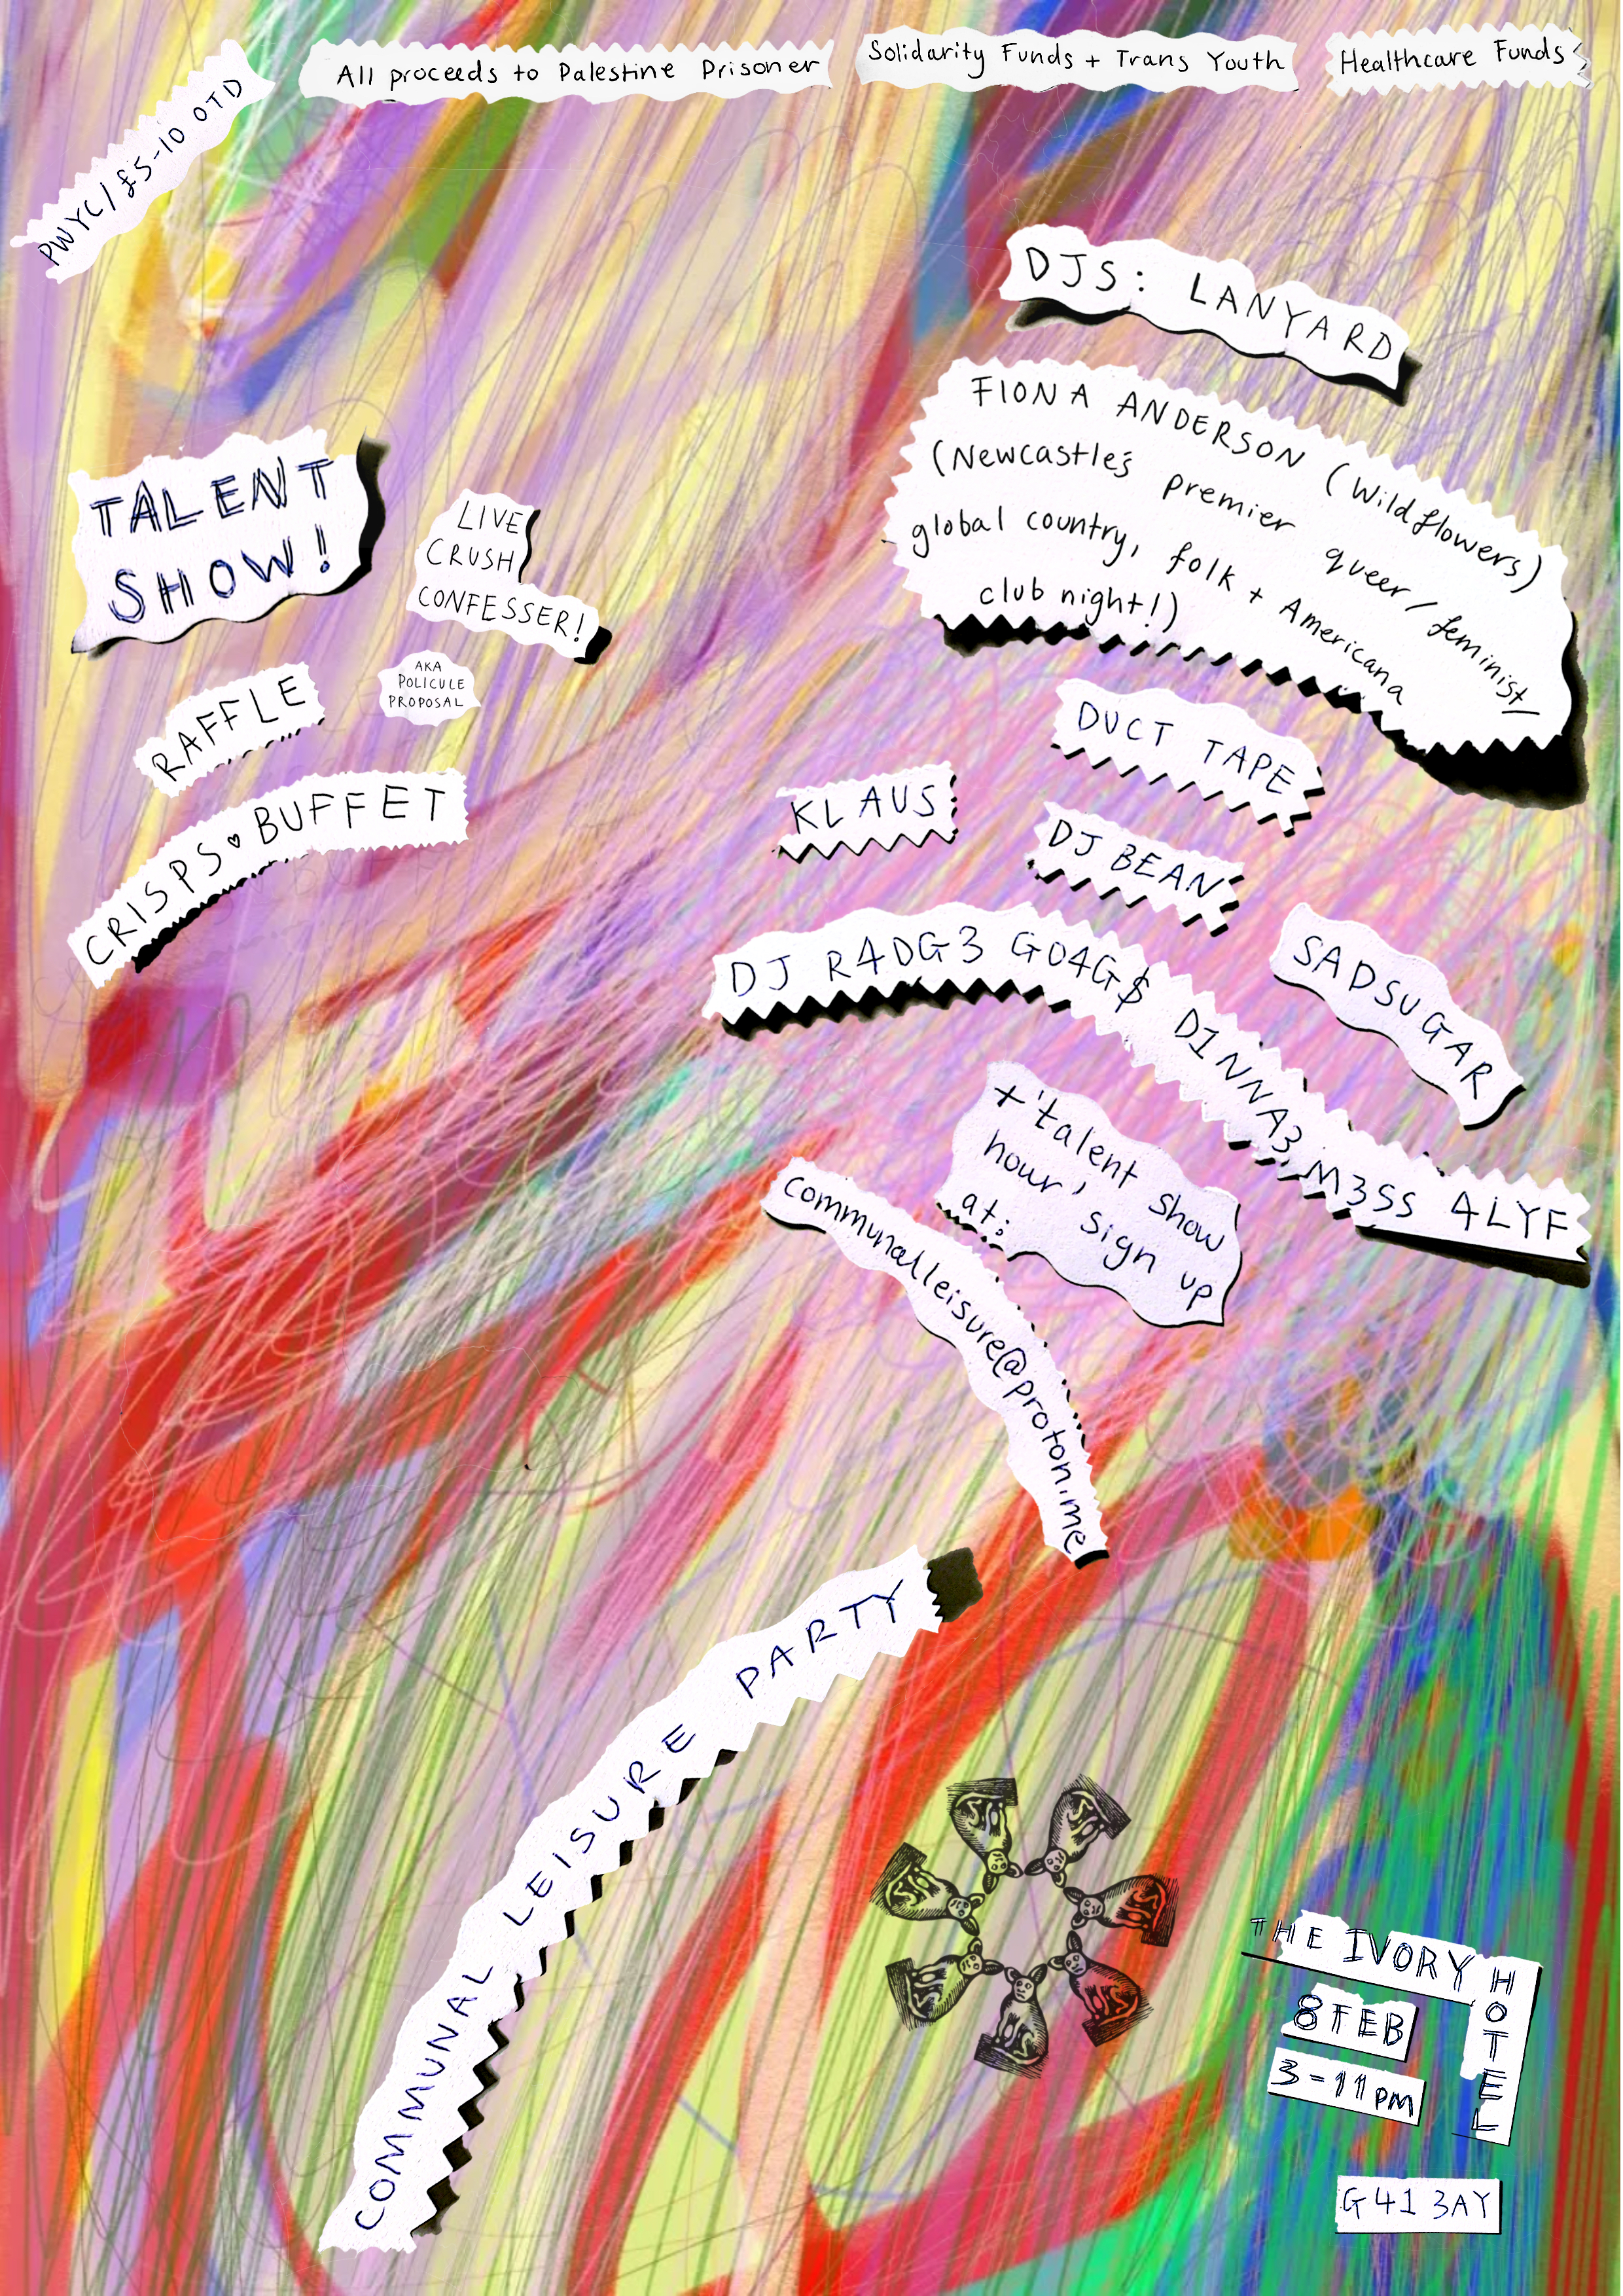 All proceeds to Palestine Prisoner Solidarity Funds + Trans Youth Healthcare Funds
PWYC/£5-10 OTD
DJS: LANYARD
FIONA ANDERSON (Wildflowers)
(Newcastle's premier queer/feminist
global country, folk + Americana
club night!)
TALENT
SHOW!
LIVE
CRUSH
CONFESSER!
AKA
POLICULE
PROPOSAL
RAFFLE
CRISPS♥BUFFET
DUCT TAPE
KLAUS
DJ BEAN
SADSUGAR
DJ R4DG3 G04G$ D1NNA3 M3SS 4LYF
+ 'talent show
hour' sign up
at:
communalleisure@proton.me
COMMUNAL LEISURE PARTY
THE IVORY
HOTEL
8 FEB
3-11PM
G41 3AY